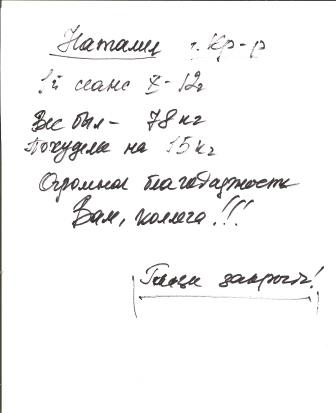 Наталия г. Кр-р
1й сеанс X-12г
Вес был - 78кг
Похудела на 15кг
Огромная благодарность
Вам, коллега!!!
закрыть!